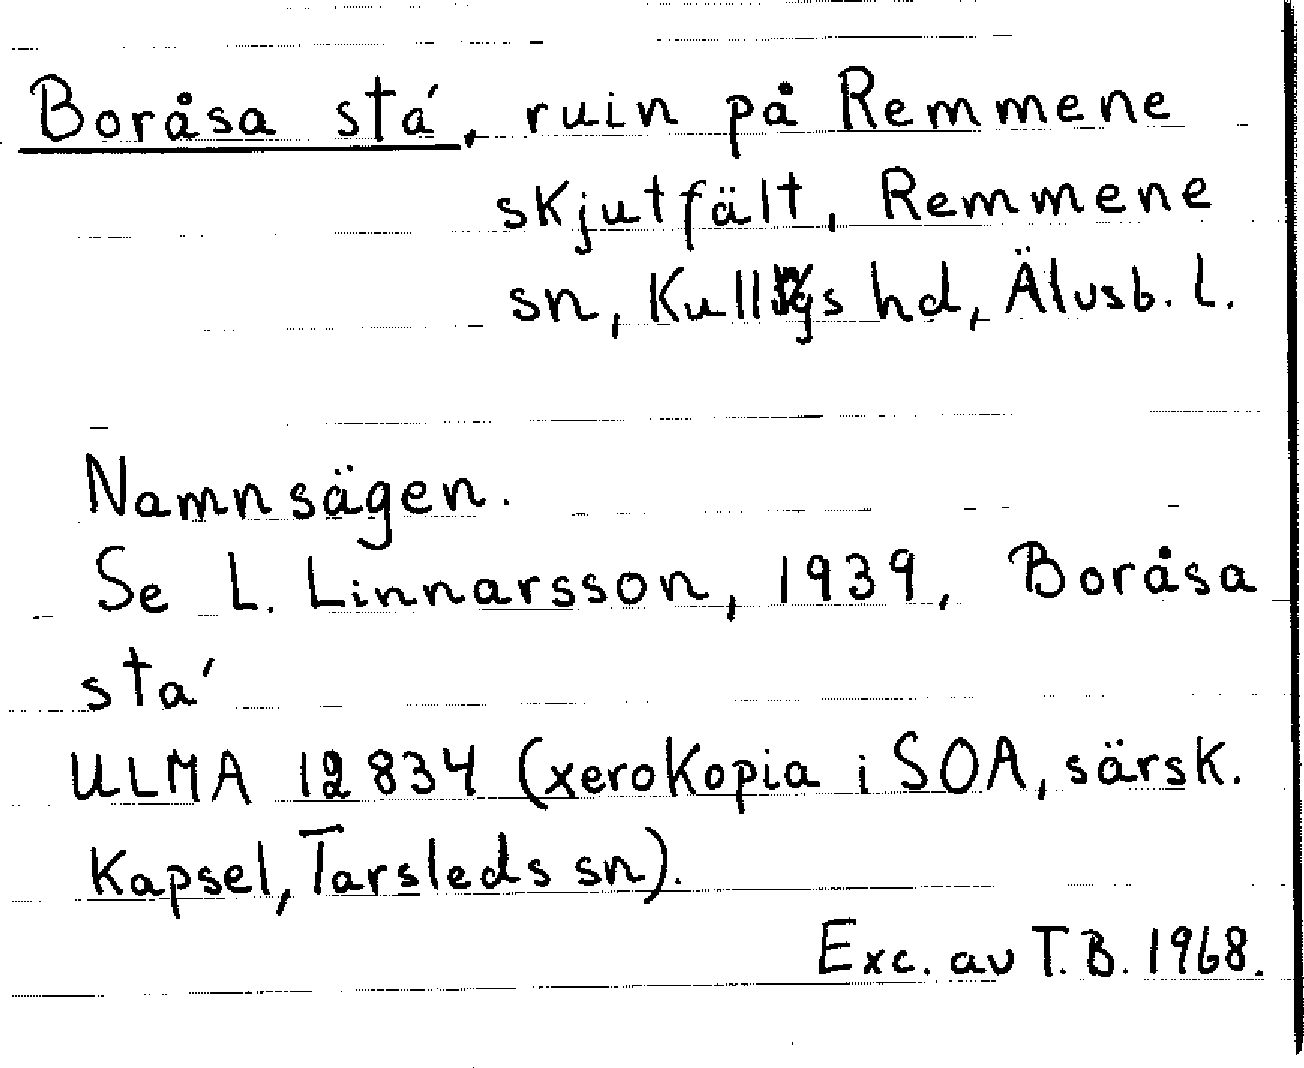 Boråsa stá, ruin på Remmene
skjutfält, Remmene
sn, Kullings hd, Älvsb. L.
Namnsägen.
Se L. Linnarsson, 1939, Boråsa
stá
ULMA 12834 (xerokopia i SOA, särsk.
kapsel, Tarsleds sn).
Exc. av T.B. 1968.